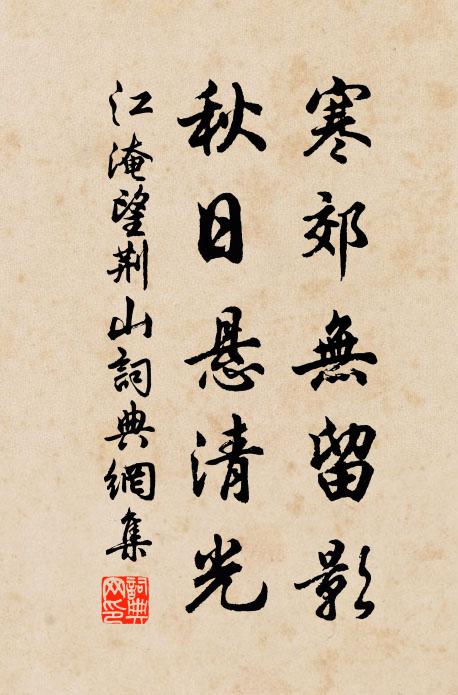 寒郊無留影
秋日悬清光
江淹望荆山詞典網集
詞典
网印